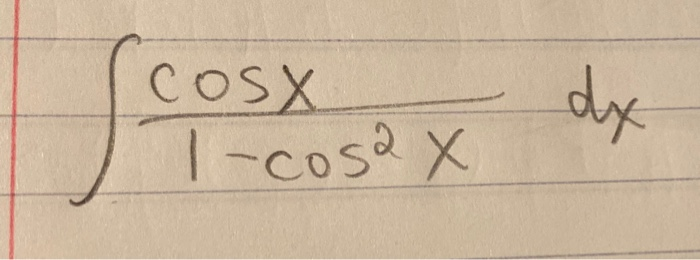 ∫ cosx / (1-cos² x) dx